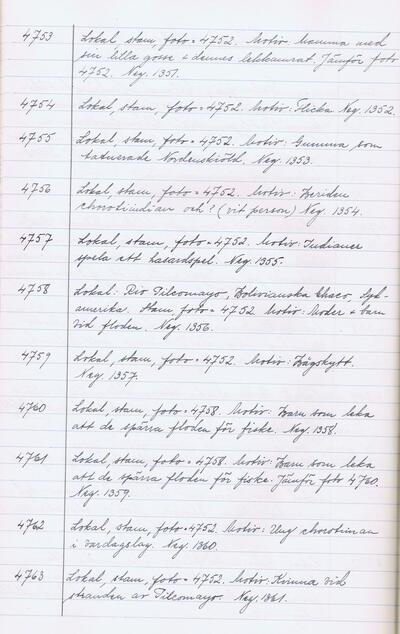 4753 Lokal, stam, foto = 4752. Motiv: Mamma med
sin lilla gosse o dennes lekkamrat. Jämför foto
4752. Neg. 1351.
4754 Lokal, stam, foto = 4752. Motiv: Flicka Neg. 1352.
4755 Lokal, stam, foto = 4752. Motiv: Gumma som
tatuerade Nordenskiöld. Neg. 1353.
4756 Lokal, stam, foto = 4752. Motiv: Beriden
chorotiindian och ? (vit person) Neg. 1354.
4757 Lokal, stam, foto = 4752. Motiv: Indianer
spela ett hasardspel. Neg. 1355.
4758 Lokal: Rio Pilcomayo, Bolivianska Chaco, Syd-
amerika. Stam foto = 4752 Motiv: Moder o barn
vid floden. Neg. 1356.
4759 Lokal, stam, foto = 4752. Motiv: Bågskytt.
Neg. 1357.
4760 Lokal, stam, foto = 4758. Motiv: Barn som leka
att de spärra floden för fiske. Neg. 1358.
4761 Lokal, stam, foto = 4758. Motiv: Barn som leka
att de spärra floden för fiske. Jämför foto 4760.
Neg. 1359.
4762 Lokal, stam, foto = 4752. Motiv: Ung chorotiman
i vardagslag. Neg. 1360.
4763 Lokal, stam, foto = 4752. Motiv: Kvinna vid
stranden av Pilcomayo. Neg. 1361.